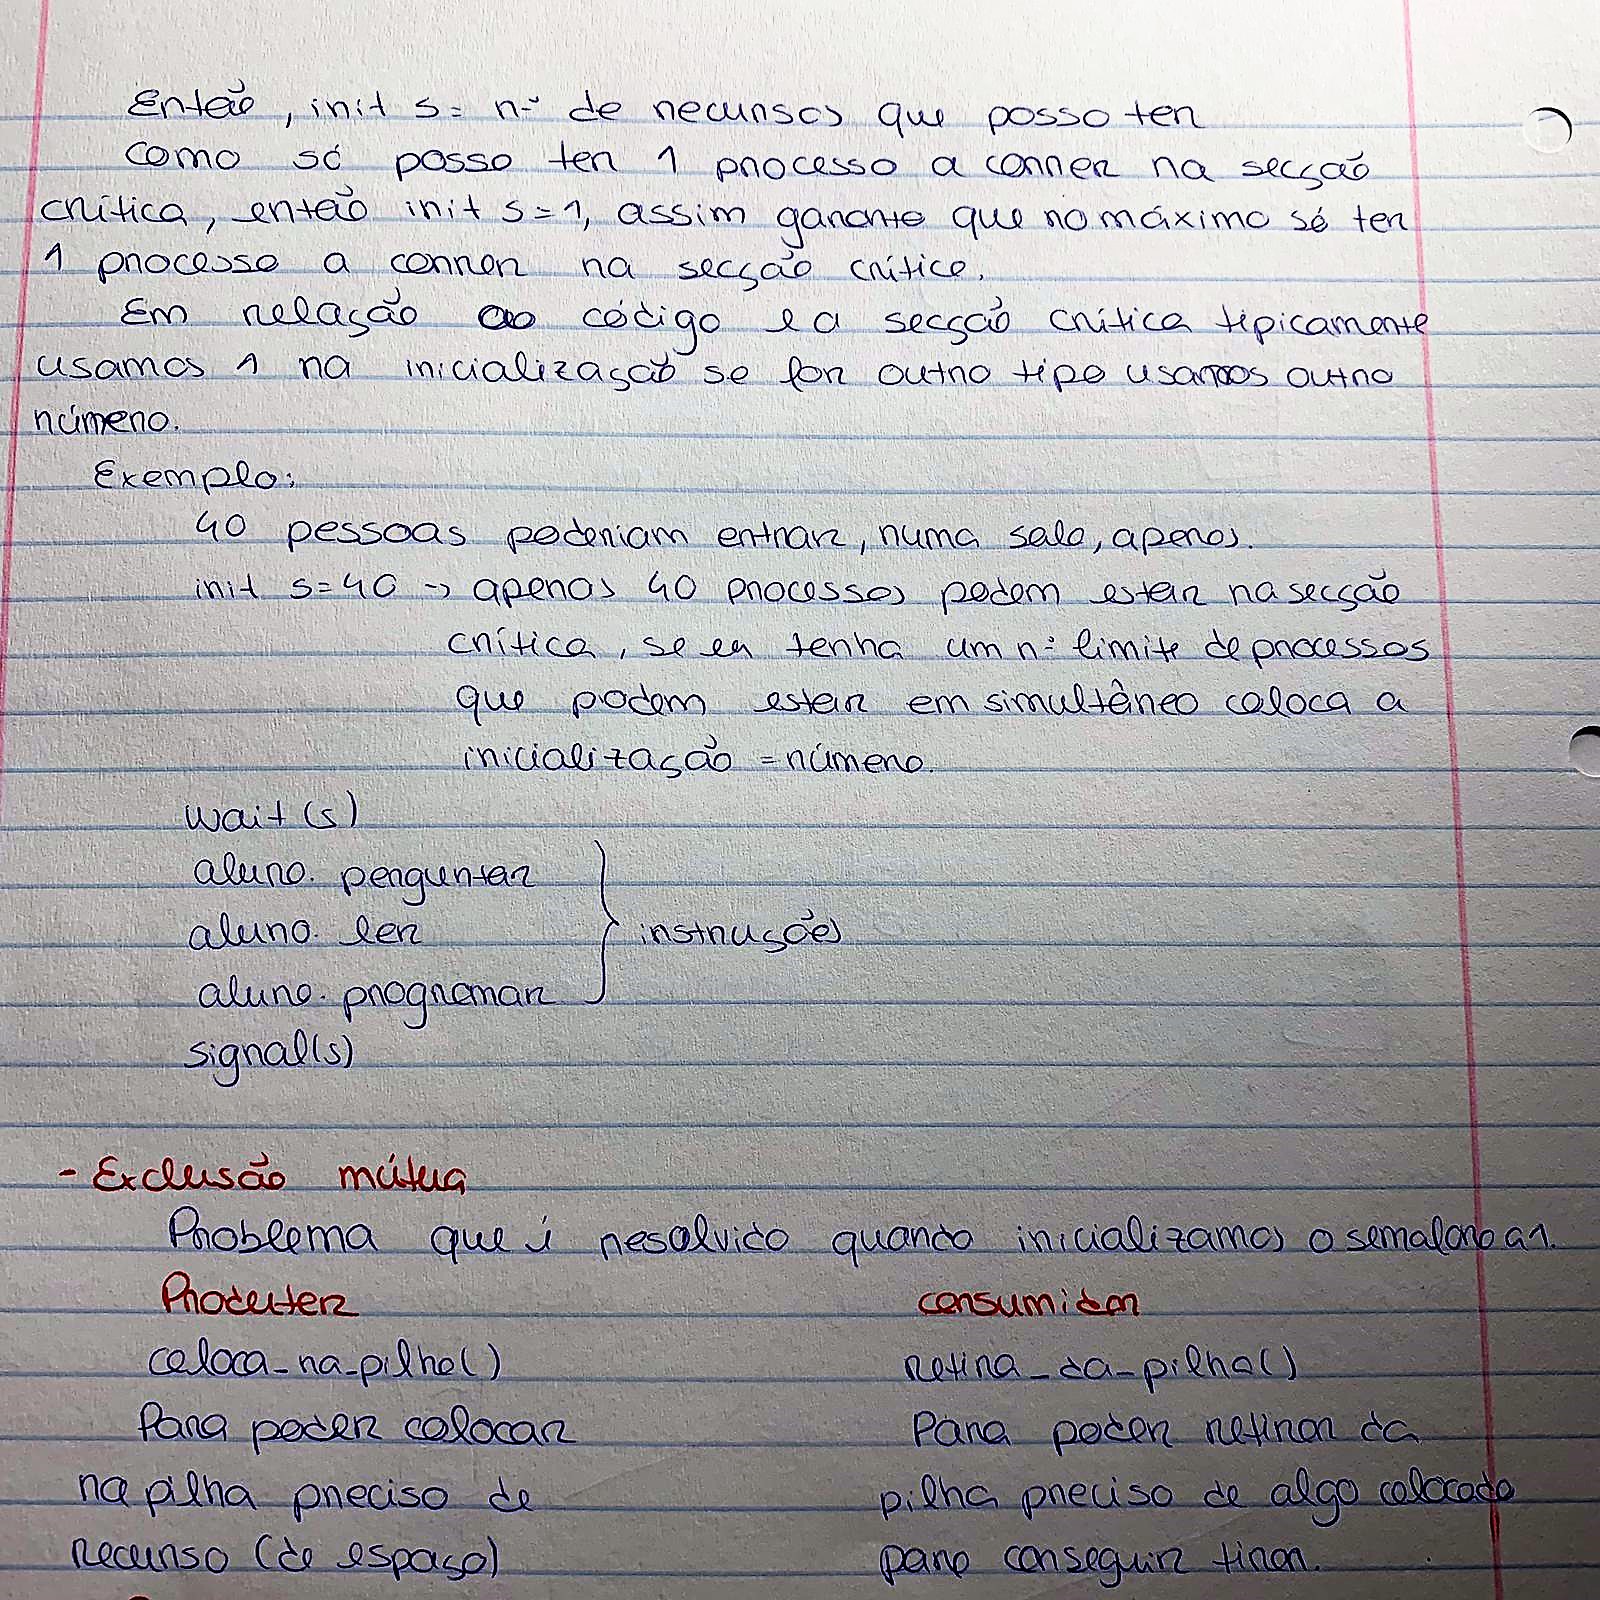 Então, init s = nº de recursos que posso ter
Como só posso ter 1 processo a correr na secção
crítica, então init s=1, assim garante que no máximo só ter
1 processo a correr na secção crítica.
Em relação ao código e a secção crítica tipicamente
usamos 1 na inicialização se for outro tipo usamos outro
número.
Exemplo:
40 pessoas poderiam entrar, numa sala, apenas.
init s=40 → apenas 40 processos podem estar na secção
crítica, se eu tenha um nº limite de processos
que podem estar em simultâneo coloca a
inicialização = número.
wait(s)
aluno. perguntar
aluno. ler
aluno. programar
} instruções
signal(s)
- Exclusão mútua
Problema que é resolvido quando inicializamos o semaforo a 1.
Produter
consumidor
coloca_na_pilha()
retira_da_pilha()
Para poder colocar
na pilha preciso de
recurso (de espaço)
Para poder retirar da
pilha preciso de algo colocado
para conseguir tirar.